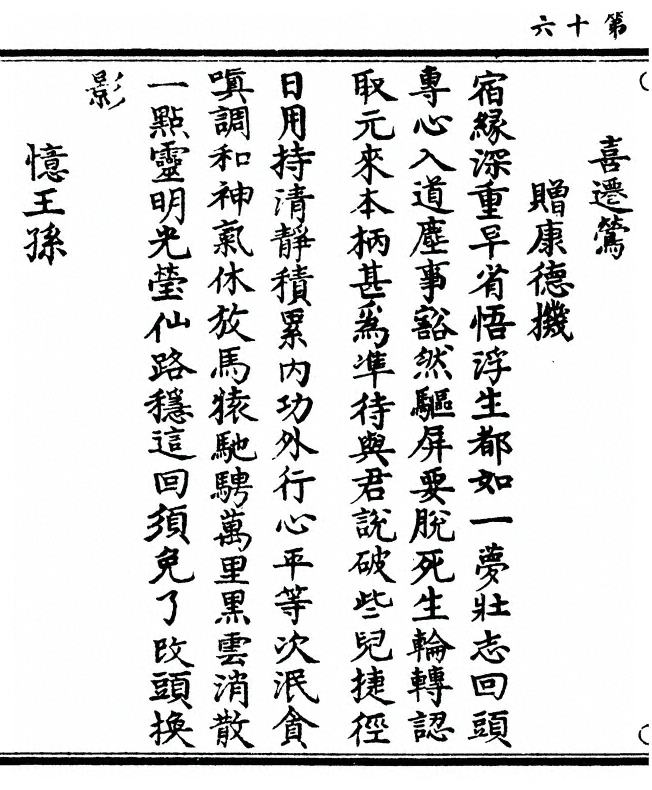 第十六
喜遷鶯
贈康德機
宿緣深重早省悟浮生都如一夢壯志回頭
專心入道塵事豁然驅屏要脫死生輪轉認
取元來本柄甚爲準待與君說破些兒捷徑
日用持清靜積累內功外行心平等次泯貪
嗔調和神氣休放馬猿馳騁萬里黑雲消散
一點靈明光瑩仙路穩這回須免了改頭換
影
憶王孫